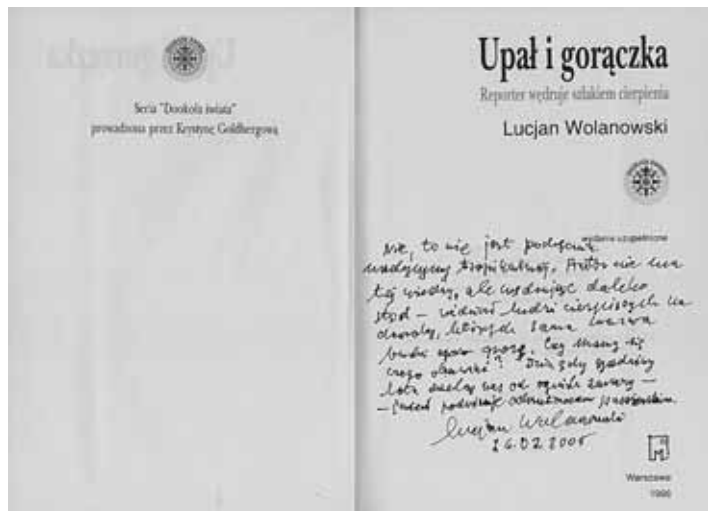 Seria "Dookoła świata"
prowadzona przez Krystynę Goldbergową
Upał i gorączka
Reporter wędruje szlakiem cierpienia
Lucjan Wolanowski
wydanie uzupełnione
Nie, to nie jest podręcznik
medycyny tropikalnej. Autor nie ma
tej wiedzy, ale wędrując daleko
stąd – widział ludzi cierpiących na
choroby, których sama nazwa
budzi grozę. Czy mamy się
czego obawiać? Dziś gdy godziny
lotu dzielą nas od ognisk zarazy –
Lucjan Wolanowski
26.02.2005
Warszawa
1996